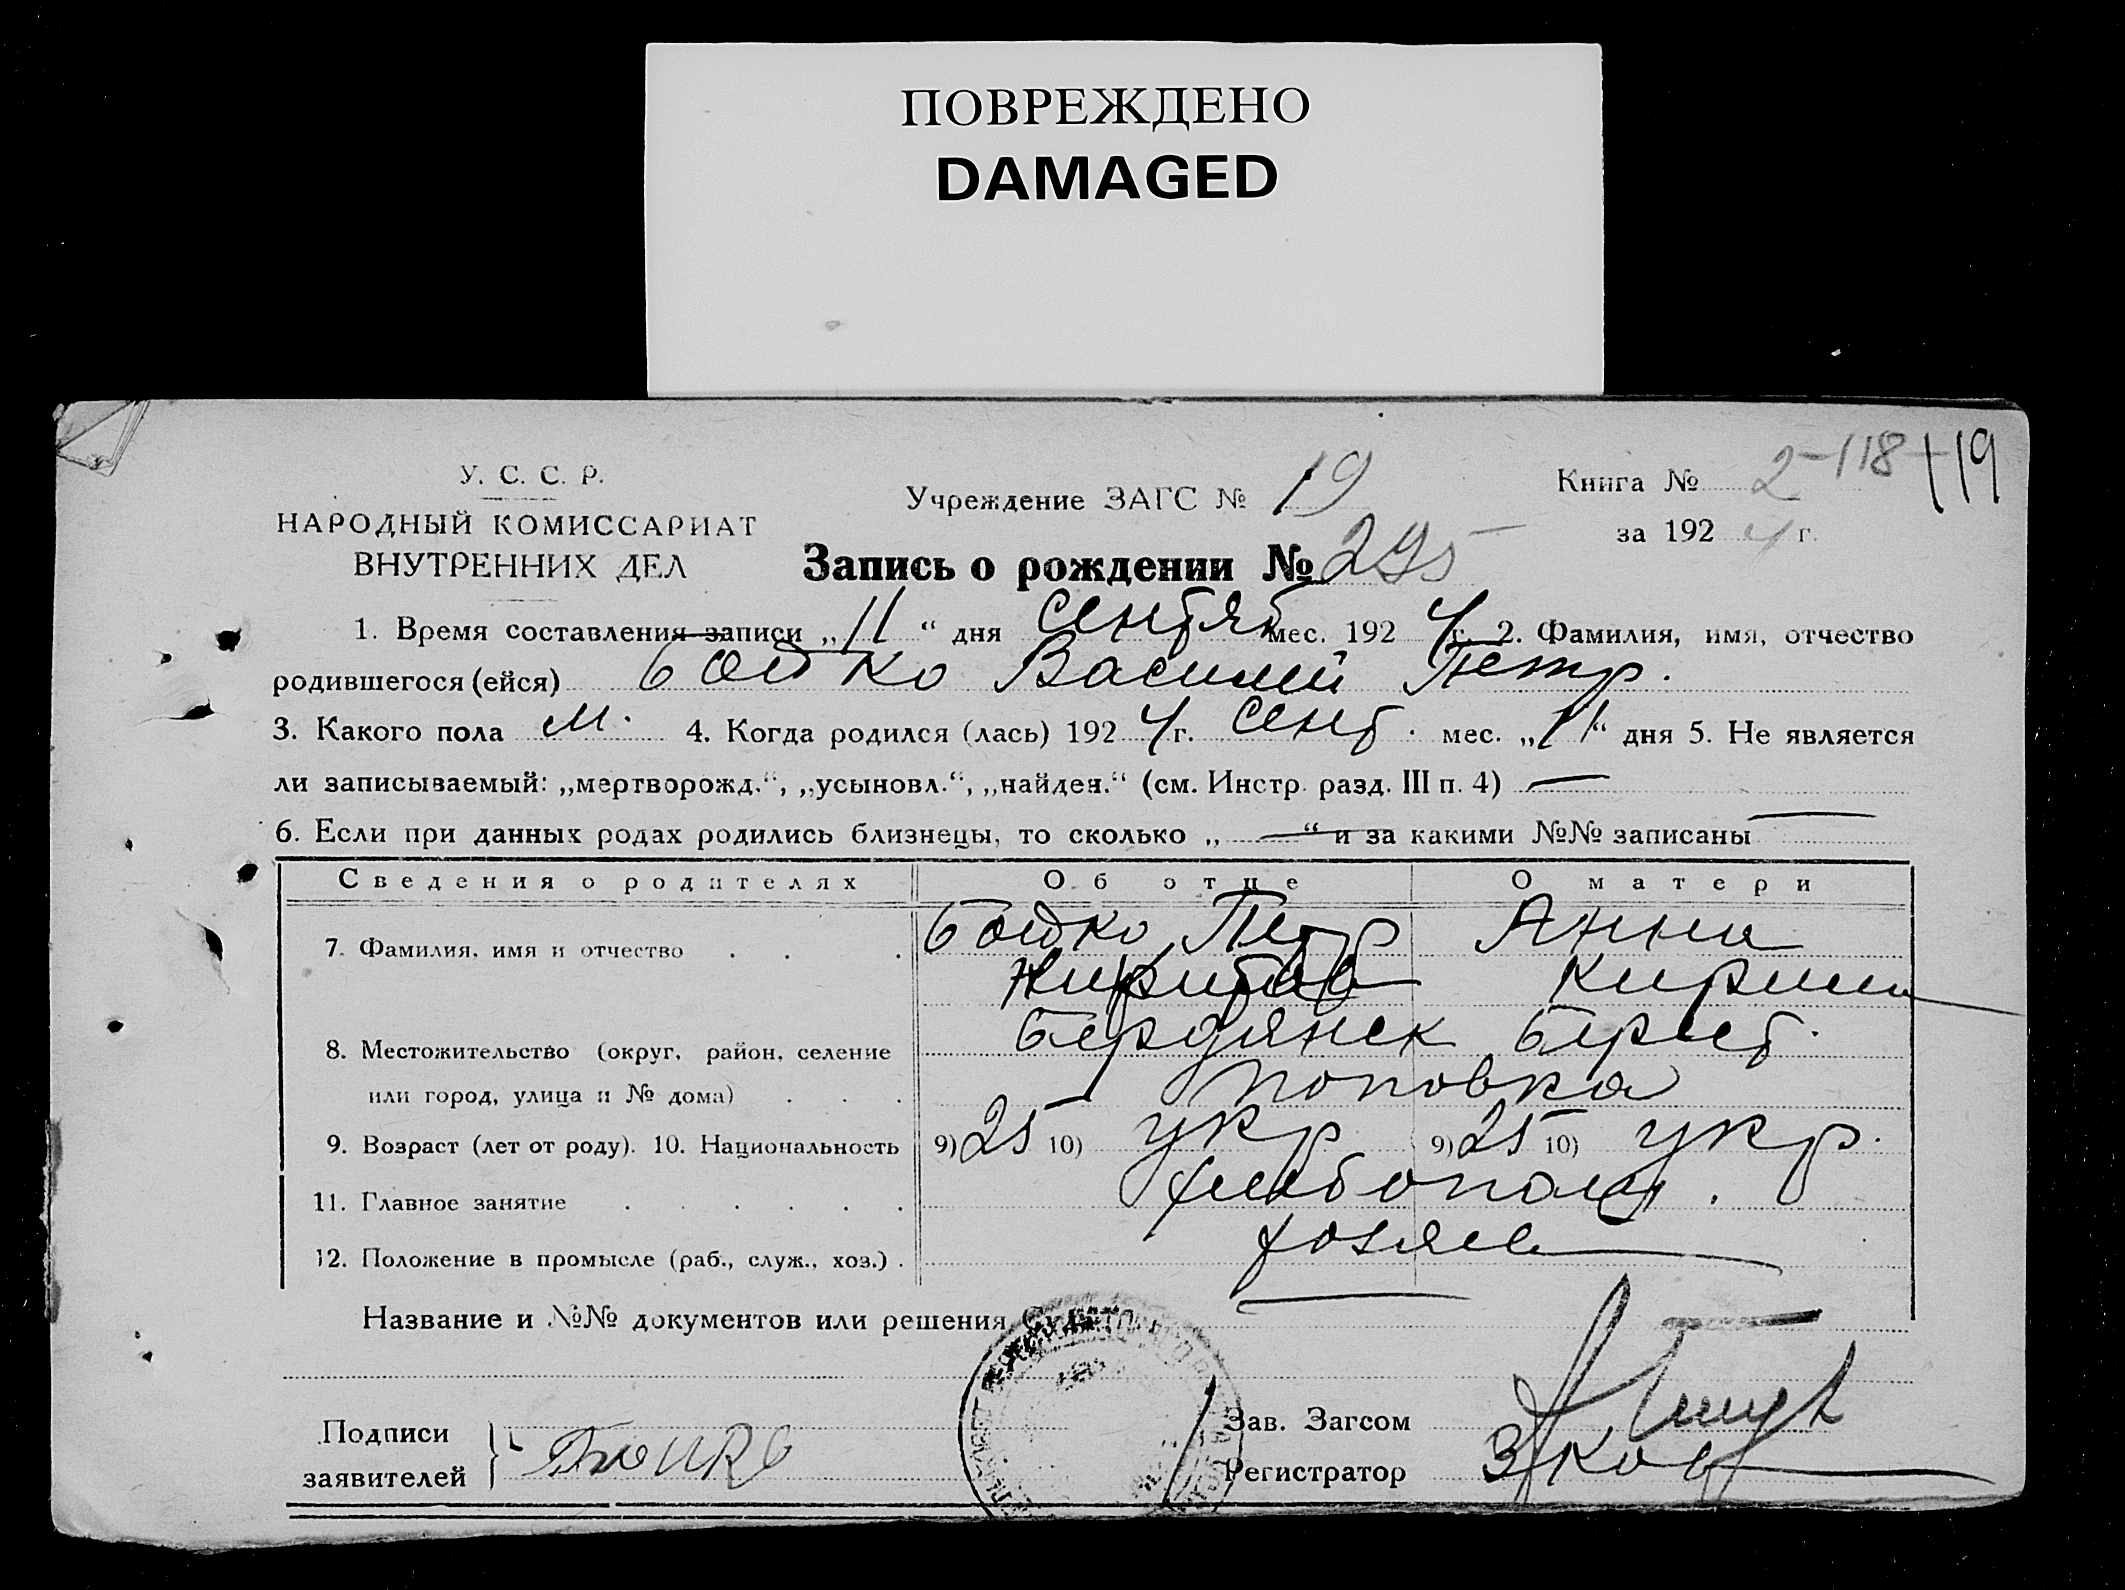 ПОВРЕЖДЕНО
DAMAGED
У. С. С. Р.
НАРОДНЫЙ КОМИССАРИАТ
ВНУТРЕННИХ ДЕЛ
Учреждение ЗАГС № 19
Книга № 2-118+119
за 192 4 г.
Запись о рождении № 295
1. Время составления записи „11“ дня Сентяб мес. 192 4 г. 2. Фамилия, имя, отчество
родившегося (ейся) Бойко Василий Петр.
3. Какого пола м. 4. Когда родился (лась) 192 4 г. Сент. мес. „11“ дня 5. Не является
ли записываемый: „мертворожд.“, „усыновл.“, „найден.“ (см. Инстр. разд. III п. 4) —
6. Если при данных родах родились близнецы, то сколько „—“ и за какими №№ записаны —
Сведения о родителях Об отце О матери
7. Фамилия, имя и отчество Бойко Петр Анна
Кирил
8. Местожительство (округ, район, селение Бердянск Берест.
или город, улица и № дома) Поповка
9. Возраст (лет от роду). 10. Национальность 9) 25 10) укр 9) 25 10) укр.
11. Главное занятие хлебопаш.
12. Положение в промысле (раб., служ., хоз.) хозяев
Название и №№ документов или решения Суда
Подписи
заявителей Бойко
Зав. Загсом
Регистратор